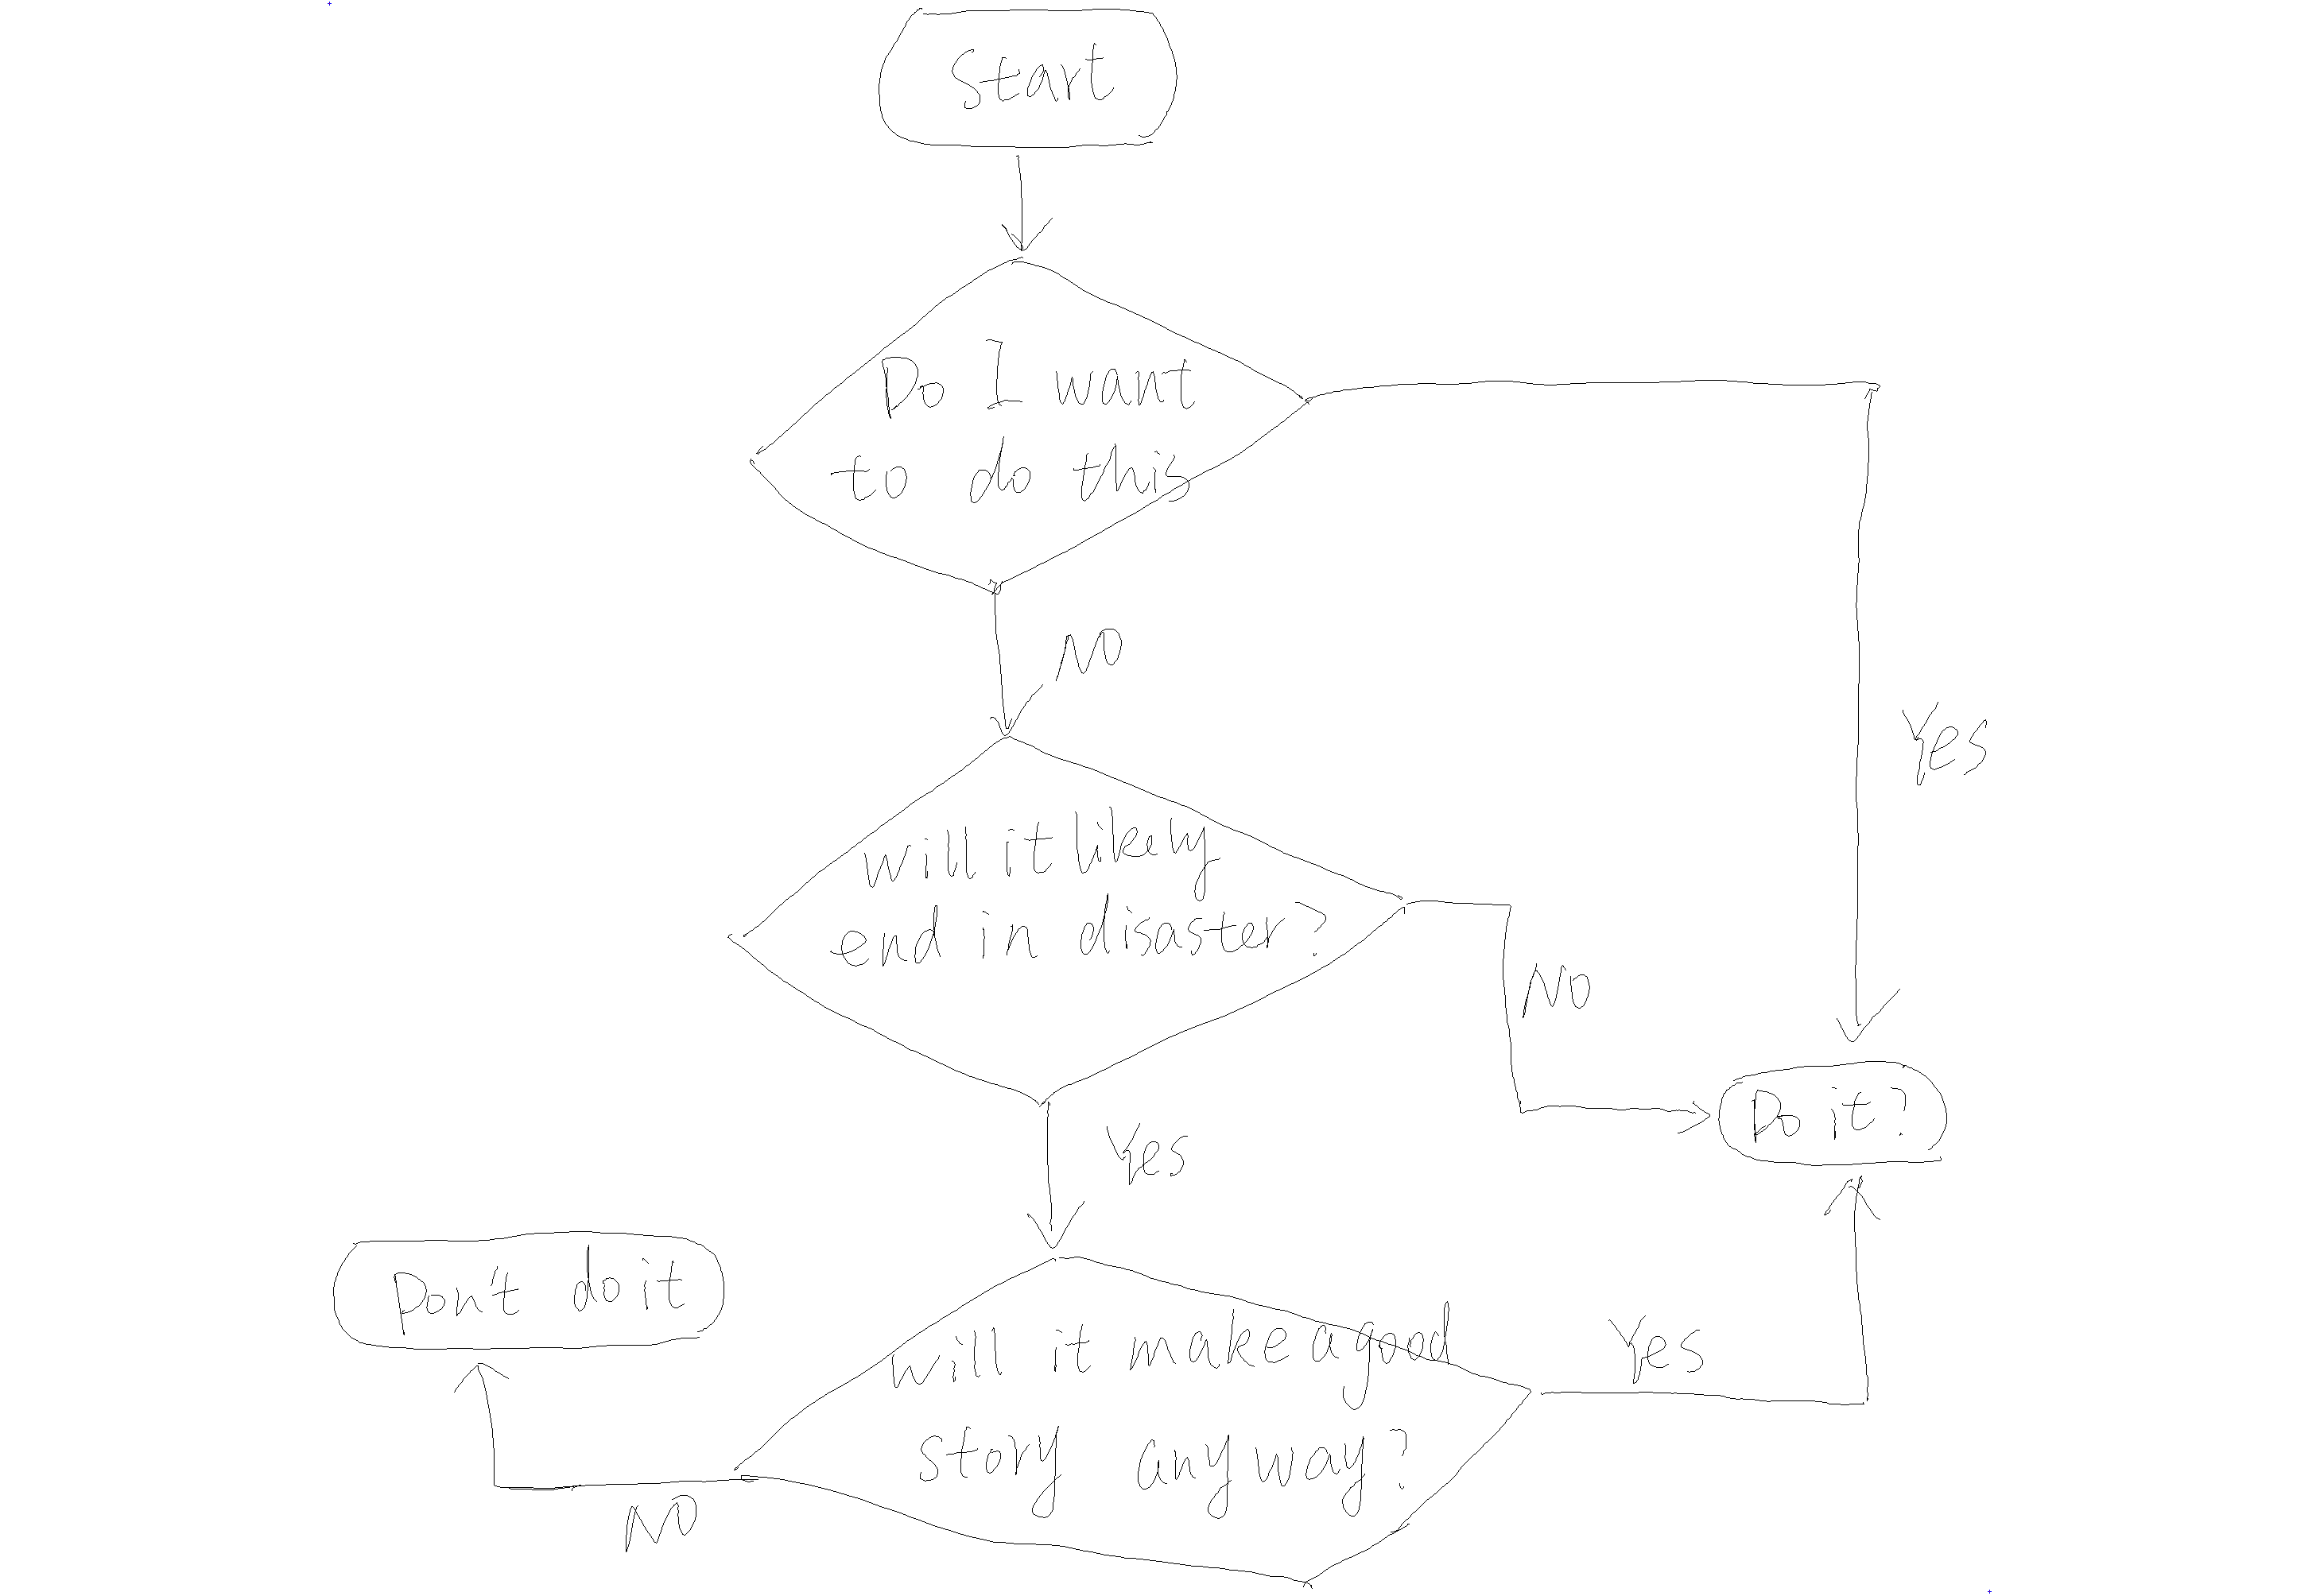 Start
Do I want
to do this
NO
Yes
will it likely
end in disaster?
NO
Do it?
Yes
Don't do it
will it make a good
Yes
story anyway?
NO